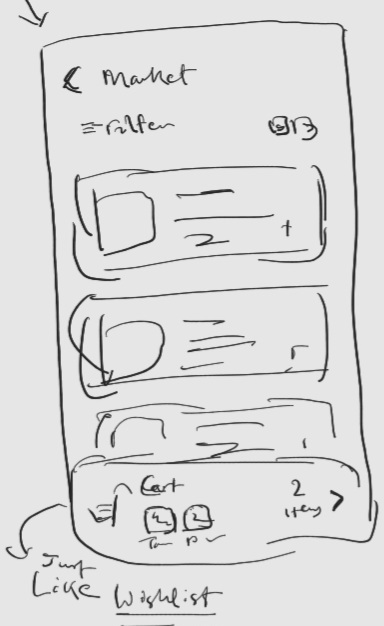 Market
Filter
+
Cart
2
items
Just
Like Wishlist